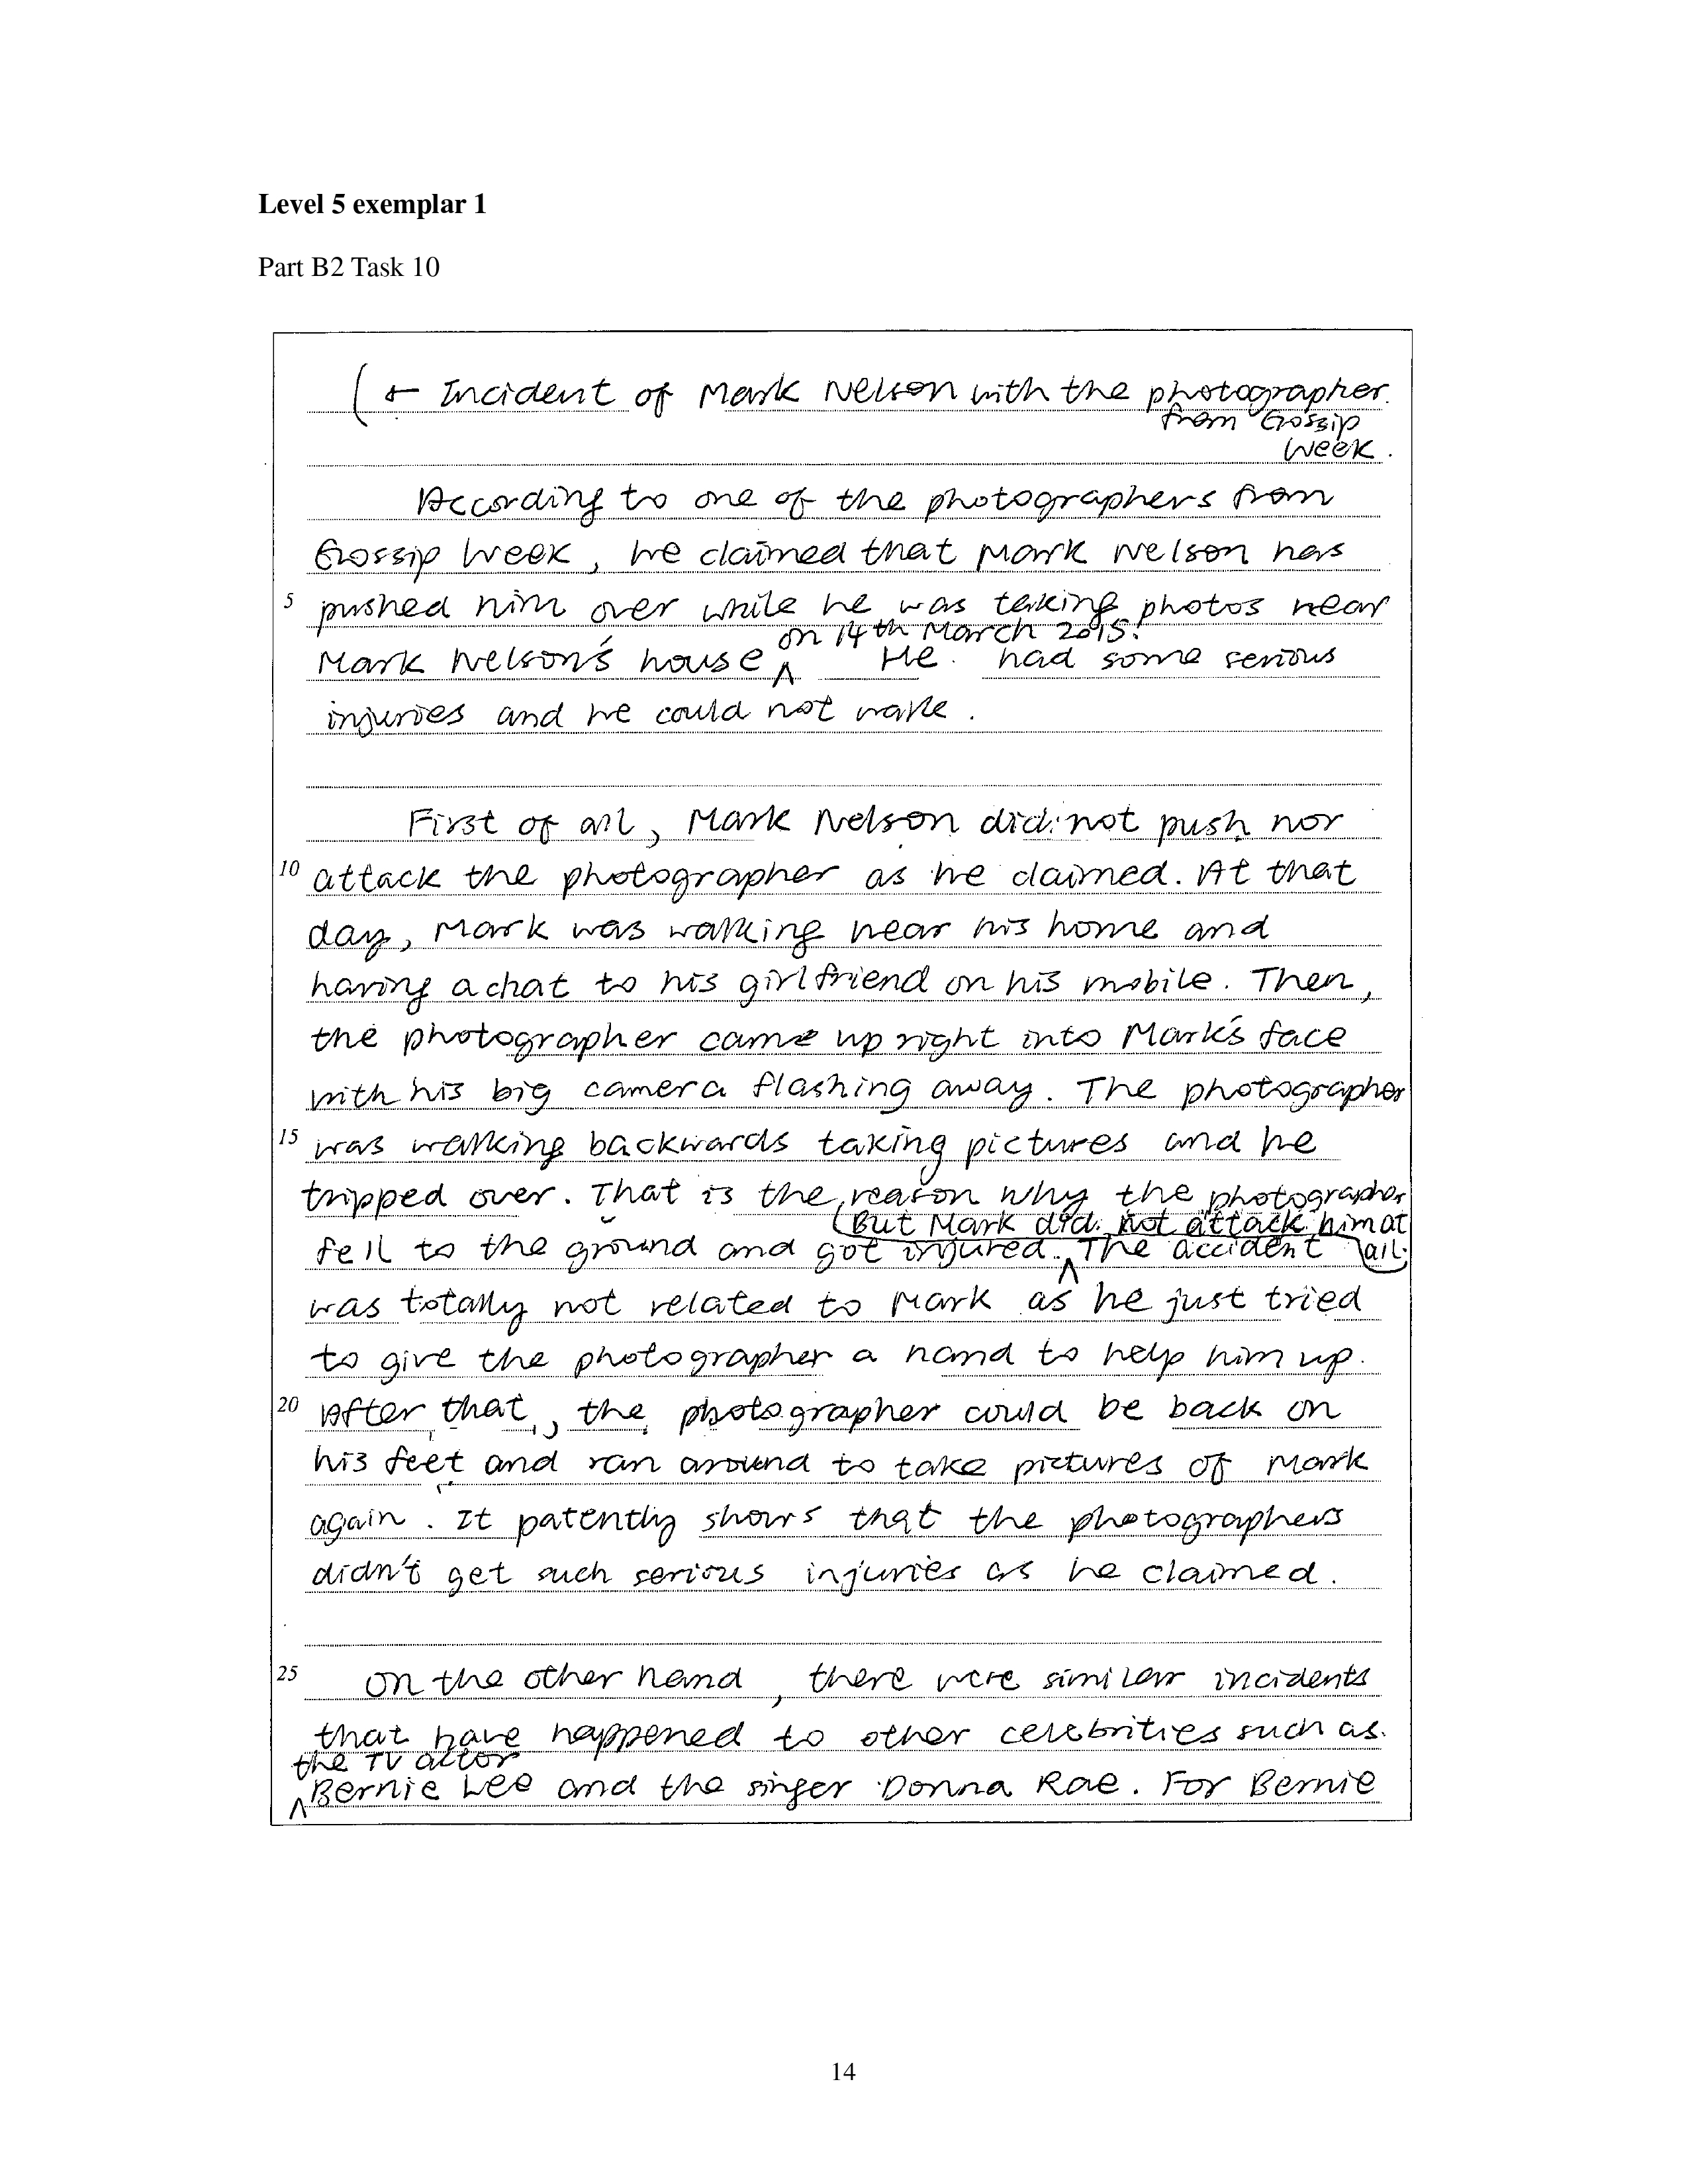 Level 5 exemplar 1
Part B2 Task 10
Incident of Mark Nelson with the photographer.
from Gossip
Week.
According to one of the photographers from
Gossip Week, he claimed that Mark Nelson has
5 pushed him over while he was taking photos near
on 14th March 2015.
Mark Nelson's house ^ He had some serious
injuries and he could not walk.
First of all, Mark Nelson did not push nor
10 attack the photographer as he claimed. At that
day, Mark was walking near his home and
having a chat to his girlfriend on his mobile. Then,
the photographer came up right into Mark's face
with his big camera flashing away. The photographer
15 was walking backwards taking pictures and he
tripped over. That is the reason why the photographer
(But Mark did not attack him at
fell to the ground and got injured. ^ The accident all.
was totally not related to Mark as he just tried
to give the photographer a hand to help him up.
20 After that, the photographer could be back on
his feet and ran around to take pictures of Mark
again. It patently shows that the photographers
didn't get such serious injuries as he claimed.
25 On the other hand, there were similar incidents
that have happened to other celebrities such as
the TV actor
^ Bernie Lee and the singer Donna Rae. For Bernie
14